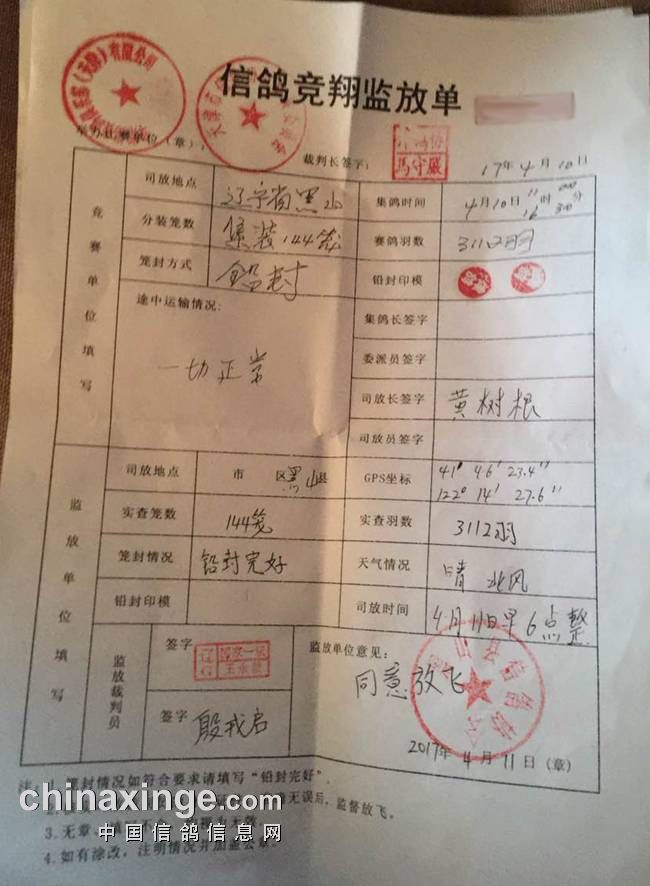 信鸽竞翔监放单
承办比赛单位（章）：
裁判长签字：
馬守嚴
17年4月10日
竞赛单位填写
司放地点 辽宁省黑山
集鸽时间 4月10日
分装笼数 集装144笼
赛鸽羽数 3112羽
笼封方式 铅封
铅封印模
途中运输情况：
一切正常
集鸽长签字
委派员签字
司放长签字 黄树根
司放员签字
监放单位填写
司放地点 市 区黑山县
GPS坐标 41° 46′ 23.4″
122° 14′ 27.6″
实查笼数 144笼
实查羽数 3112羽
笼封情况 铅封完好
天气情况 晴 北风
铅封印模
司放时间 4月11日早6点整
监放裁判员
签字
签字 殷戎启
监放单位意见：
同意放飞
2017年4月11日（章）
注：1.笼封情况如符合要求请填写“铅封完好”.
2. 无误后，监督放飞。
3.无章、
4.如有涂改，注明情况并加盖公章.
chinaxinge.com
中国信鸽信息网